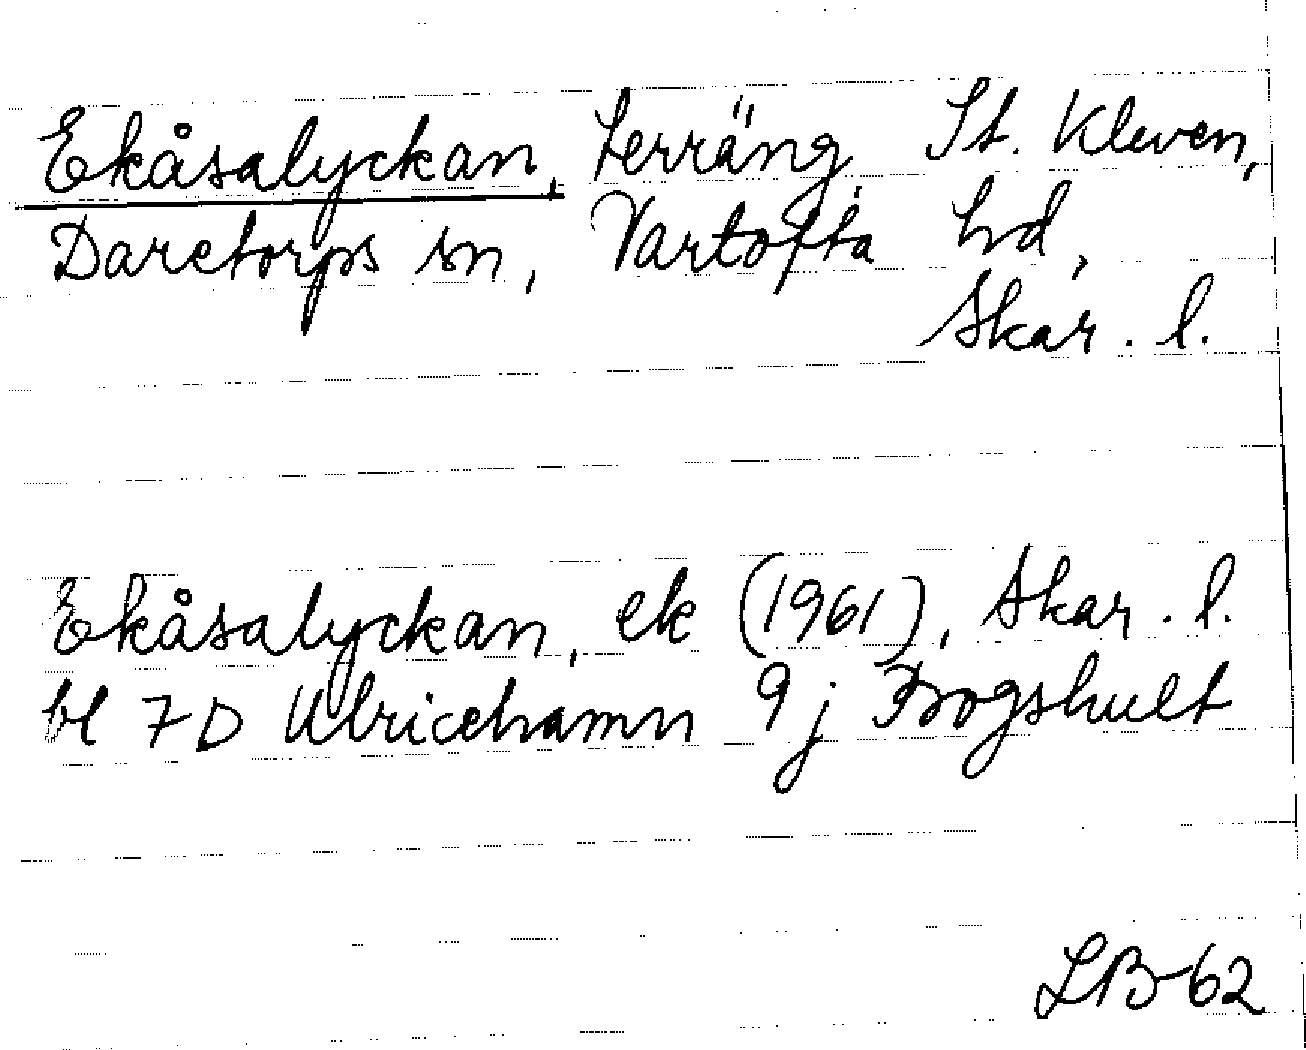 Ekåsalyckan, terräng St. Kleven,
Daretorps sn, Vartofta hd,
Skar. l.
Ekåsalyckan, ek (1961), Skar. l.
bl 7D Ulricehamn 9 j Frogshult
LB-62